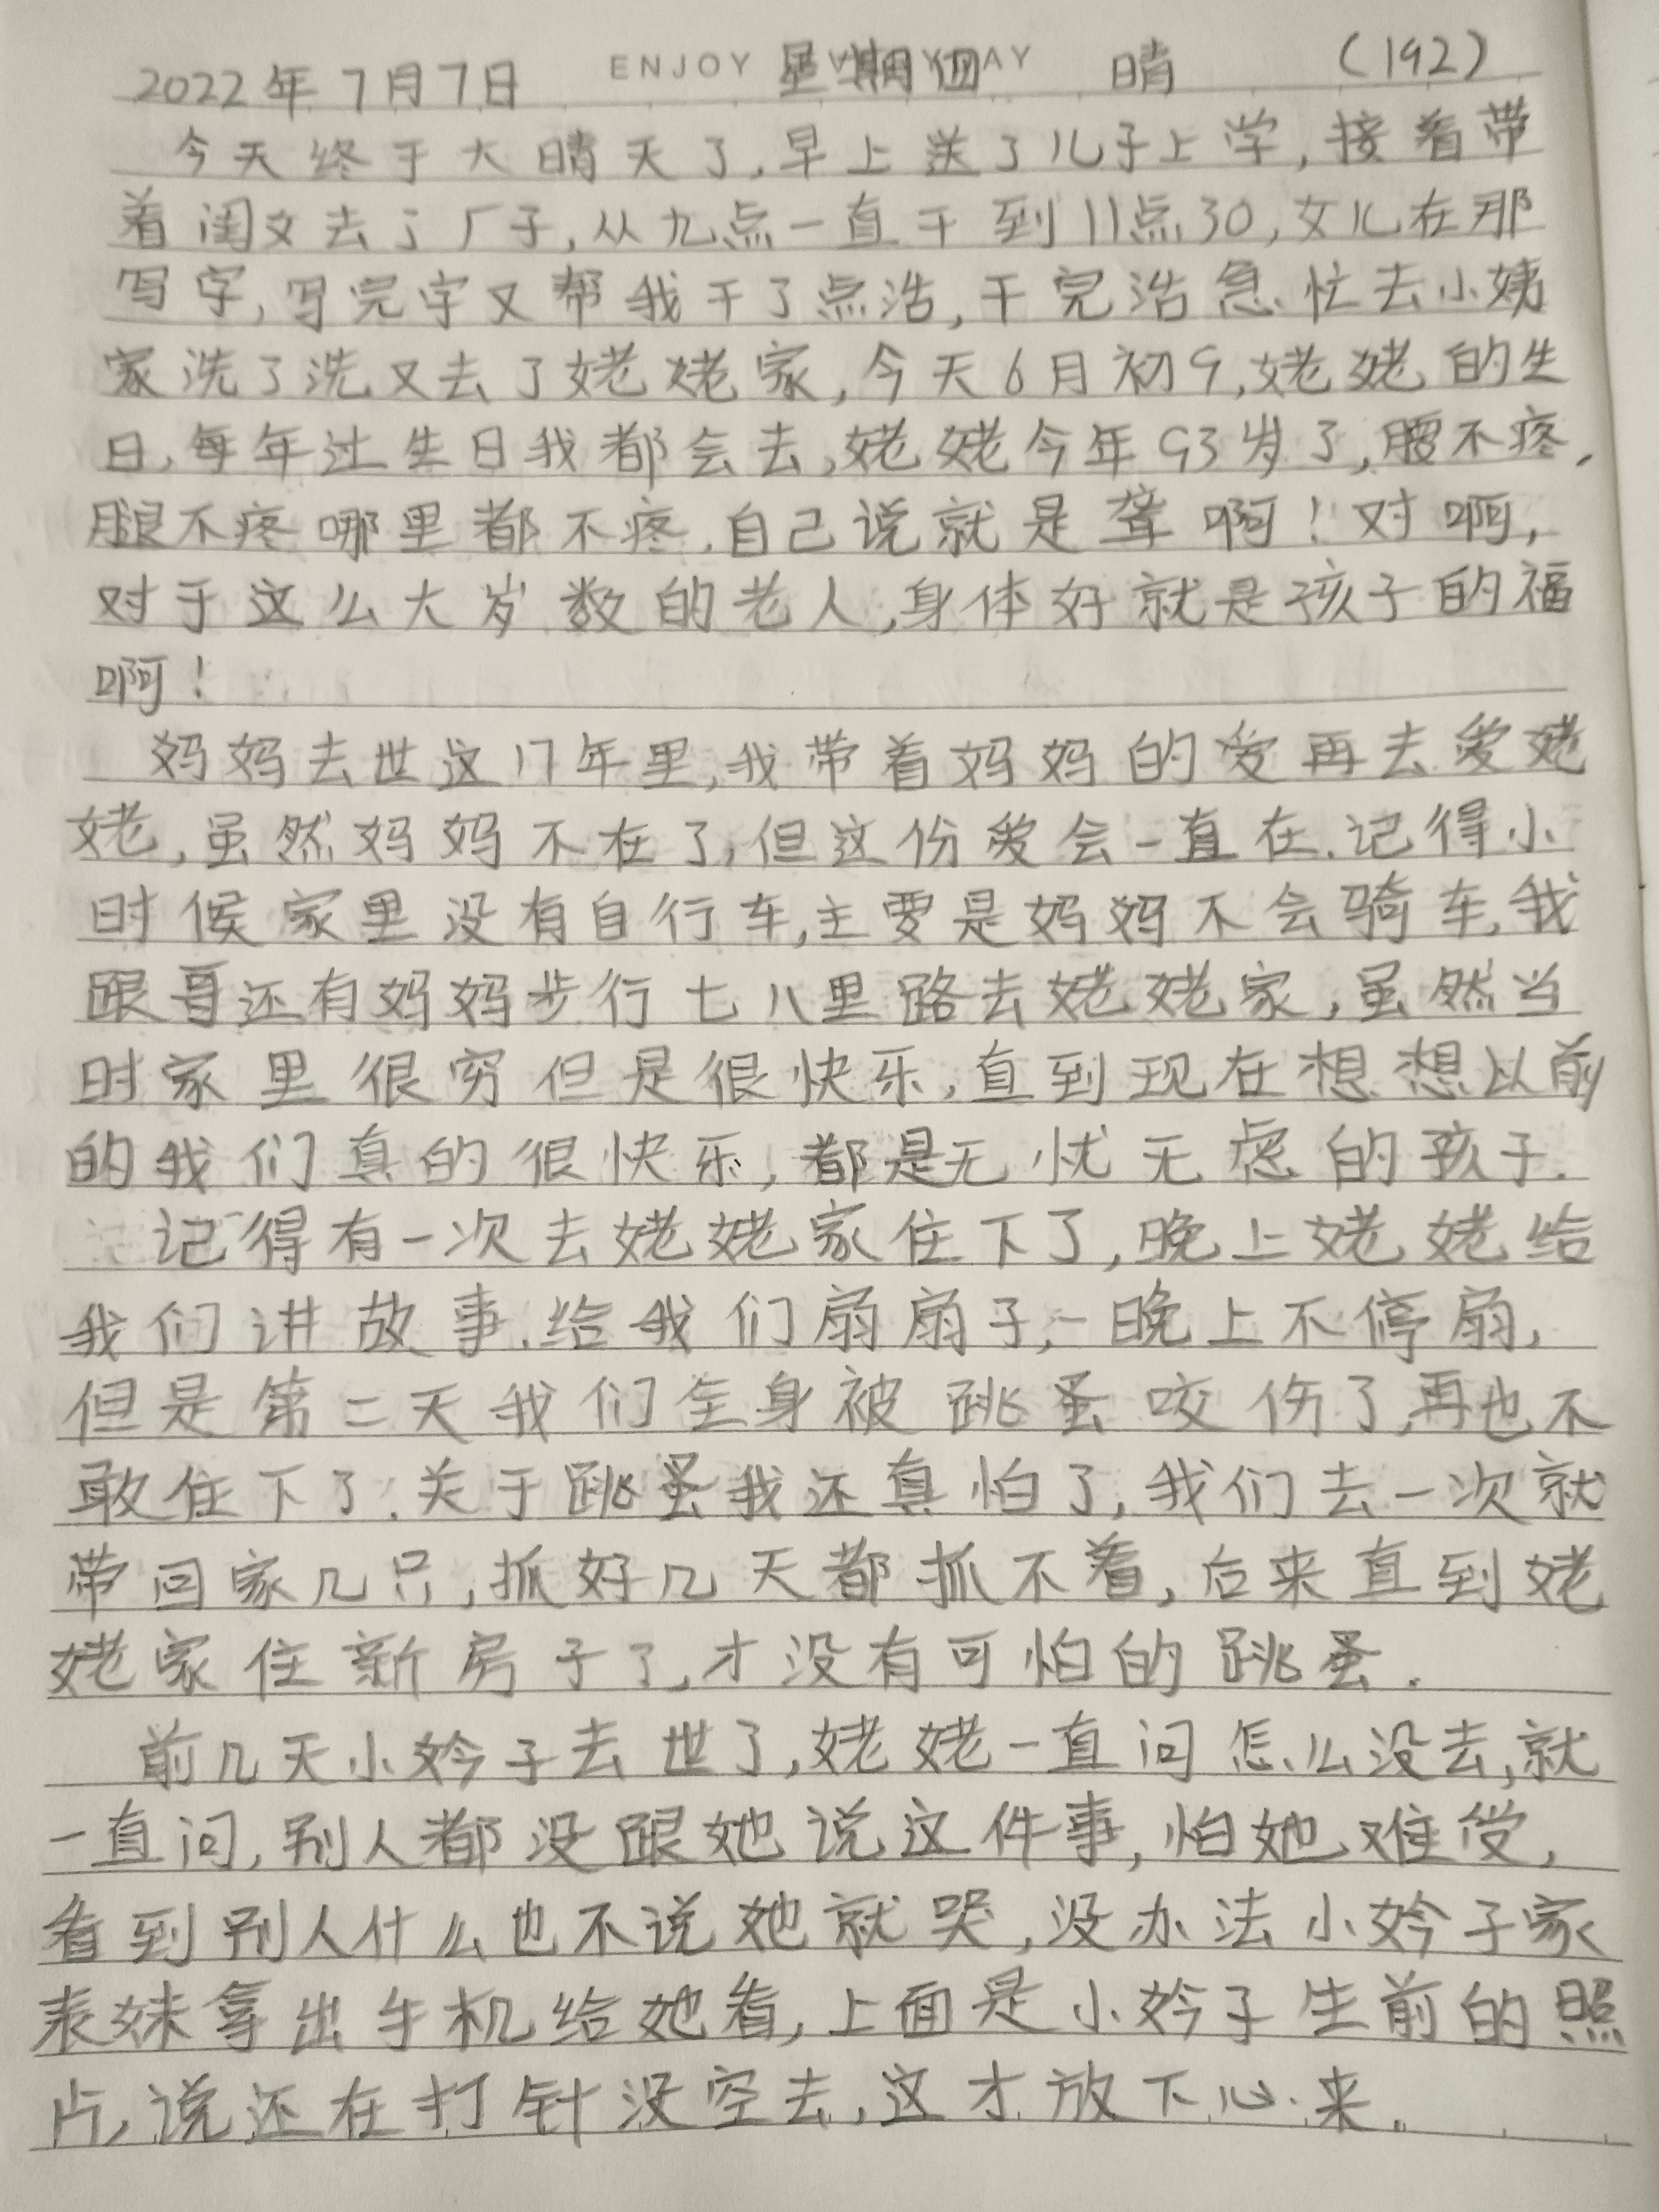 ENJOY EVERYDAY
2022年7月7日 星期四 晴 (192)
今天终于大晴天了,早上送了儿子上学,接着带
着闺女去了厂子,从九点一直干到11点30,女儿在那
写字,写完字又帮我干了点活,干完活急忙去小姨
家洗了洗又去了姥姥家,今天6月初9,姥姥的生
日,每年过生日我都会去,姥姥今年93岁了,腰不疼,
腿不疼哪里都不疼,自己说就是聋啊!对啊,
对于这么大岁数的老人,身体好就是孩子的福
啊!
妈妈去世这17年里,我带着妈妈的爱再去爱姥
姥,虽然妈妈不在了,但这份爱会一直在.记得小
时候家里没有自行车,主要是妈妈不会骑车,我
跟哥还有妈妈步行七八里路去姥姥家,虽然当
时家里很穷但是很快乐,直到现在想想以前
的我们真的很快乐,都是无忧无虑的孩子.
记得有一次去姥姥家住下了,晚上姥姥给
我们讲故事.给我们扇扇子,一晚上不停扇,
但是第二天我们全身被跳蚤咬伤了,再也不
敢住下了.关于跳蚤我还真怕了,我们去一次就
带回家几只,抓好几天都抓不着,后来直到姥
姥家住新房子了,才没有可怕的跳蚤.
前几天小妗子去世了,姥姥一直问怎么没去,就
一直问,别人都没跟她说这件事,怕她难受,
看到别人什么也不说她就哭,没办法小妗子家
表妹拿出手机给她看,上面是小妗子生前的照
片,说还在打针没空去,这才放下心来.